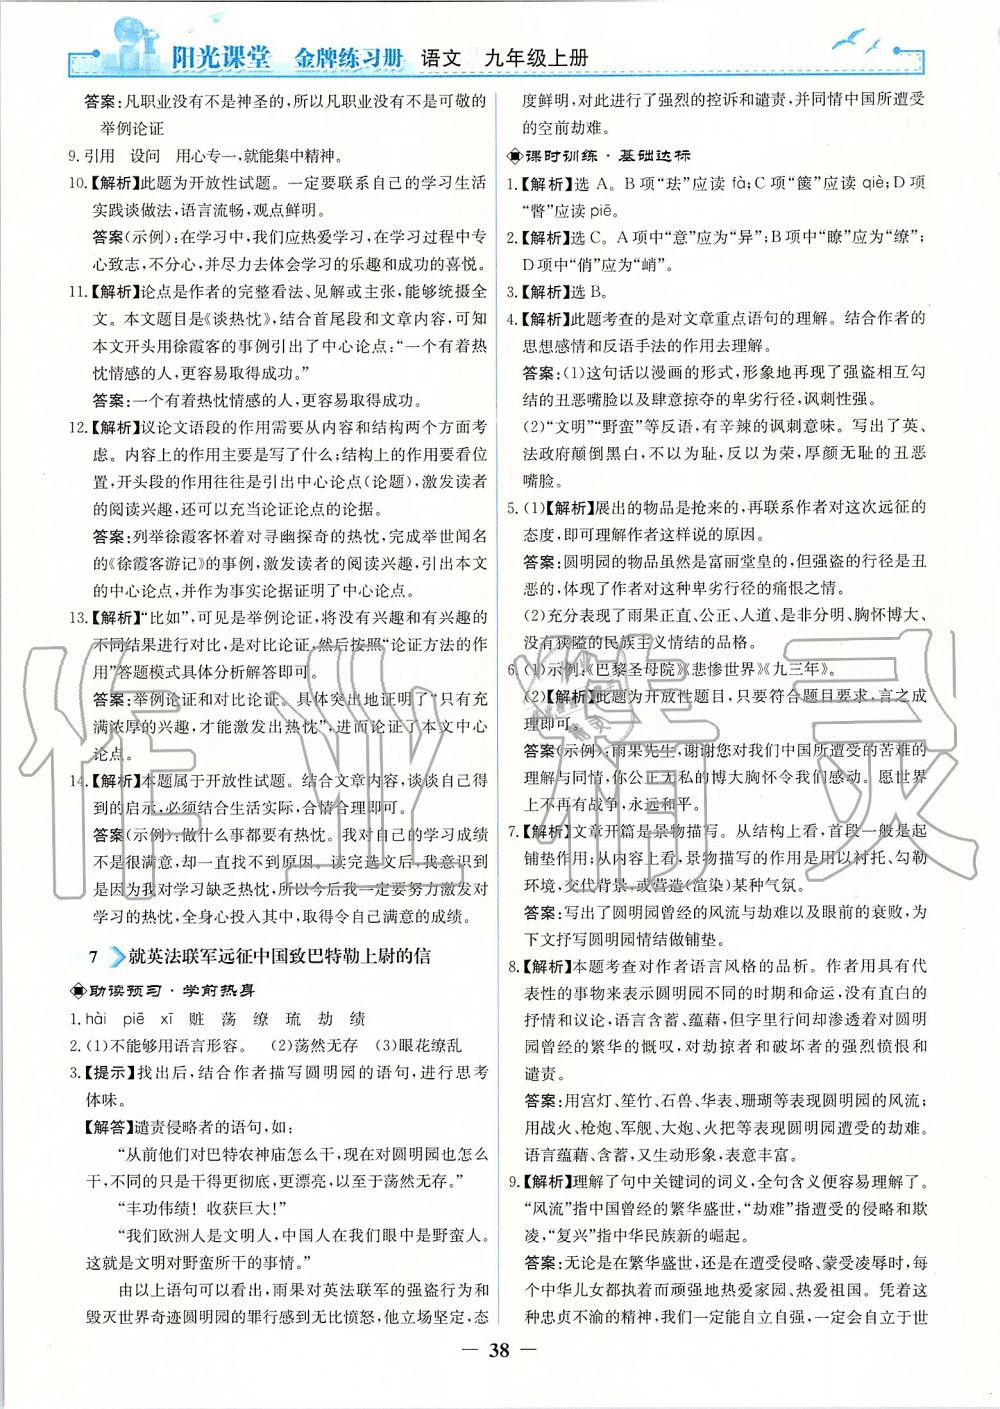 阳光课堂 金牌练习册 语文 九年级上册
答案:凡职业没有不是神圣的,所以凡职业没有不是可敬的
举例论证
9. 引用 设问 用心专一,就能集中精神。
10.【解析】此题为开放性试题。一定要联系自己的学习生活
实践谈做法,语言流畅,观点鲜明。
答案(示例):在学习中,我们应热爱学习,在学习过程中专
心致志,不分心,并尽力去体会学习的乐趣和成功的喜悦。
11.【解析】论点是作者的完整看法、见解或主张,能够统摄全
文。本文题目是《谈热忱》,结合首尾段和文章内容,可知
本文开头用徐霞客的事例引出了中心论点:“一个有着热
忱情感的人,更容易取得成功。”
答案:一个有着热忱情感的人,更容易取得成功。
12.【解析】议论文语段的作用需要从内容和结构两个方面考
虑。内容上的作用主要是写了什么;结构上的作用要看位
置,开头段的作用往往是引出中心论点(论题),激发读者
的阅读兴趣,还可以充当论证论点的论据。
答案:列举徐霞客怀着对寻幽探奇的热忱,完成举世闻名
的《徐霞客游记》的事例,激发读者的阅读兴趣,引出本文
的中心论点,并作为事实论据证明了中心论点。
13.【解析】“比如”,可见是举例论证,将没有兴趣和有兴趣的
不同结果进行对比,是对比论证,然后按照“论证方法的作
用”答题模式具体分析解答即可。
答案:举例论证和对比论证。具体突出地证明了“只有充
满浓厚的兴趣,才能激发出热忱”,进而论证了本文中心
论点。
14.【解析】本题属于开放性试题。结合文章内容,谈谈自己得
到的启示,必须结合生活实际,合情合理即可。
答案(示例):做什么事都要有热忱。我对自己的学习成绩
不是很满意,却一直找不到原因。读完选文后,我意识到
是因为我对学习缺乏热忱,所以今后我一定要努力激发对
学习的热忱,全身心投入其中,取得令自己满意的成绩。
7 就英法联军远征中国致巴特勒上尉的信
助读预习·学前热身
1. hài piē xī 赃 荡 缭 琉 劫 绩
2. (1)不能够用语言形容。 (2)荡然无存 (3)眼花缭乱
3.【提示】找出后,结合作者描写圆明园的语句,进行思考
体味。
【解答】谴责侵略者的语句,如:
“从前他们对巴特农神庙怎么干,现在对圆明园也怎么
干,不同的只是干得更彻底,更漂亮,以至于荡然无存。”
“丰功伟绩!收获巨大!”
“我们欧洲人是文明人,中国人在我们眼中是野蛮人。
这就是文明对野蛮所干的事情。”
由以上语句可以看出,雨果对英法联军的强盗行为和
毁灭世界奇迹圆明园的罪行感到无比愤怒,他立场坚定,态
度鲜明,对此进行了强烈的控诉和谴责,并同情中国所遭受
的空前劫难。
课时训练·基础达标
1.【解析】选 A。B 项“珐”应读 fà;C 项“箧”应读 qiè;D 项
“瞥”应读 piē。
2.【解析】选 C。A 项中“意”应为“异”;B 项中“瞭”应为“缭”;
D 项中“俏”应为“峭”。
3.【解析】选 B。
4.【解析】此题考查的是对文章重点语句的理解。结合作者的
思想感情和反语手法的作用去理解。
答案:(1)这句话以漫画的形式,形象地再现了强盗相互勾
结的丑恶嘴脸以及肆意掠夺的卑劣行径,讽刺性强。
(2)“文明”“野蛮”等反语,有辛辣的讽刺意味。写出了英、
法政府颠倒黑白,不以为耻,反以为荣,厚颜无耻的丑恶
嘴脸。
5. (1)【解析】展出的物品是抢来的,再联系作者对这次远征的
态度,即可理解作者这样说的原因。
答案:圆明园的物品虽然是富丽堂皇的,但强盗的行径是丑
恶的,体现了作者对这种卑劣行径的痛恨之情。
(2)充分表现了雨果正直、公正、人道、是非分明、胸怀博大、
没有狭隘的民族主义情结的品格。
6. (1)示例:《巴黎圣母院》《悲惨世界》《九三年》。
(2)【解析】此题为开放性题目,只要符合题目要求,言之成
理即可。
答案(示例):雨果先生,谢谢您对我们中国所遭受的苦难的
理解与同情,你公正无私的博大胸怀令我们感动。愿世界
上不再有战争,永远和平。
7.【解析】文章开篇是景物描写。从结构上看,首段一般是起
铺垫作用;从内容上看,景物描写的作用是用以衬托、勾勒
环境,交代背景,或营造(渲染)某种气氛。
答案:写出了圆明园曾经的风流与劫难以及眼前的衰败,为
下文抒写圆明园情结做铺垫。
8.【解析】本题考查对作者语言风格的品析。作者用具有代
表性的事物来表示圆明园不同的时期和命运,没有直白的
抒情和议论,语言含蓄、蕴藉,但字里行间却渗透着对圆明
园曾经的繁华的慨叹,对劫掠者和破坏者的强烈愤恨和
谴责。
答案:用宫灯、笙竹、石兽、华表、珊瑚等表现圆明园的风流;
用战火、枪炮、军舰、大炮、火把等表现圆明园遭受的劫难。
语言蕴藉、含蓄,又生动形象,表意丰富。
9.【解析】理解了句中关键词的词义,全句含义便容易理解了。
“风流”指中国曾经的繁华盛世,“劫难”指遭受的侵略和欺
凌,“复兴”指中华民族新的崛起。
答案:无论是在繁华盛世,还是在遭受侵略、蒙受凌辱时,每
个中华儿女都揣着顽强地热爱家园、热爱祖国。凭着这
种忠贞不渝的精神,我们一定能自立自强,一定会自立于世
— 38 —
作业精灵